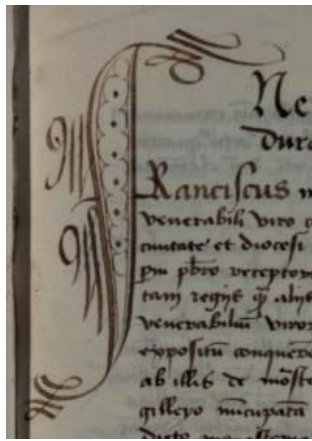 Ne
dura
Franciscus
venerabili viro
civitate et diocesi
pm pbro receptom
tam regijs q̄ alijs
venerabiliū viror
expositū conquere
ab illis de mōste
gilleyo nūcupata
dicto monasterio